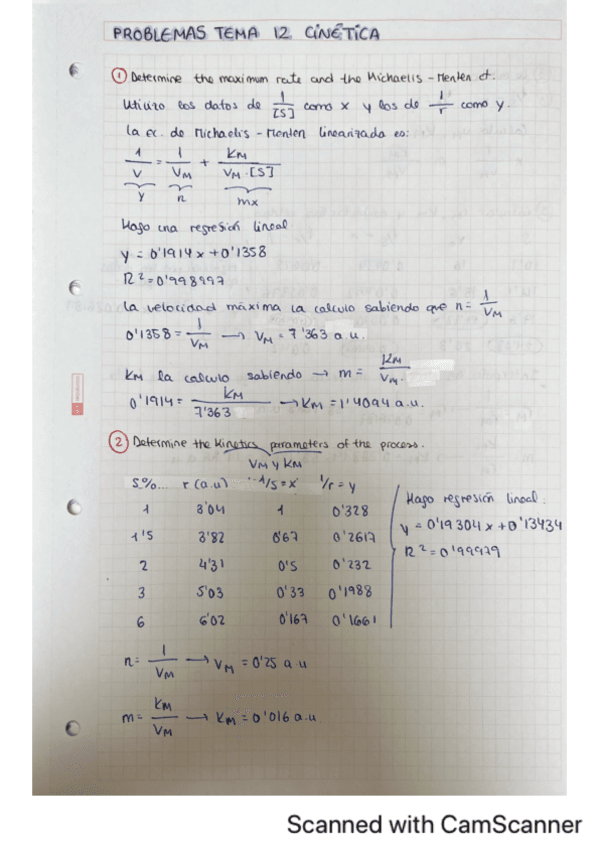 PROBLEMAS TEMA 12 CINÉTICA
① Determine the maximum rate and the Michaelis-Menten ct.
Utilizo los datos de 1/[S] como x y los de 1/r como y.
La ec. de Michaelis-Menten linearizada es:
1/V = 1/VM + KM/VM·[S]
y n mx
Hago una regresión lineal
y = 0'1914x + 0'1358
R² = 0'998997
La velocidad máxima la calculo sabiendo que n = 1/VM
0'1358 = 1/VM → VM = 7'363 a.u.
KM la calculo sabiendo → m = KM/VM.
0'1914 = KM/7'363 → KM = 1'4094 a.u.
② Determine the kinetics parameters of the process.
VM y KM
S%... r (a.u) 1/S = x 1/r = y
1 3'04 1 0'328
1'5 3'82 0'67 0'2617
2 4'31 0'5 0'232
3 5'03 0'33 0'1988
6 6'02 0'167 0'1661
Hago regresión lineal:
y = 0'19304x + 0'13434
R² = 0'99979
n = 1/VM → VM = 0'25 a.u
m = KM/VM → KM = 0'016 a.u.
Scanned with CamScanner